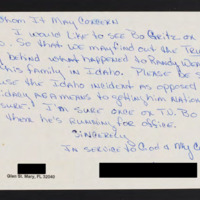 Whom It May Concern
I would like to see Bo Gritz on
So that we may find out the Tru
behind what happened to Randy Wea
his family in Idaho. Please be s
use the Idaho incident as opposed
as a means to getting him Nation
sure! I'm sure once on TV. Bo
then he's running for office.
Sincerely
In service to God & My C
Glen St. Mary, FL 32040